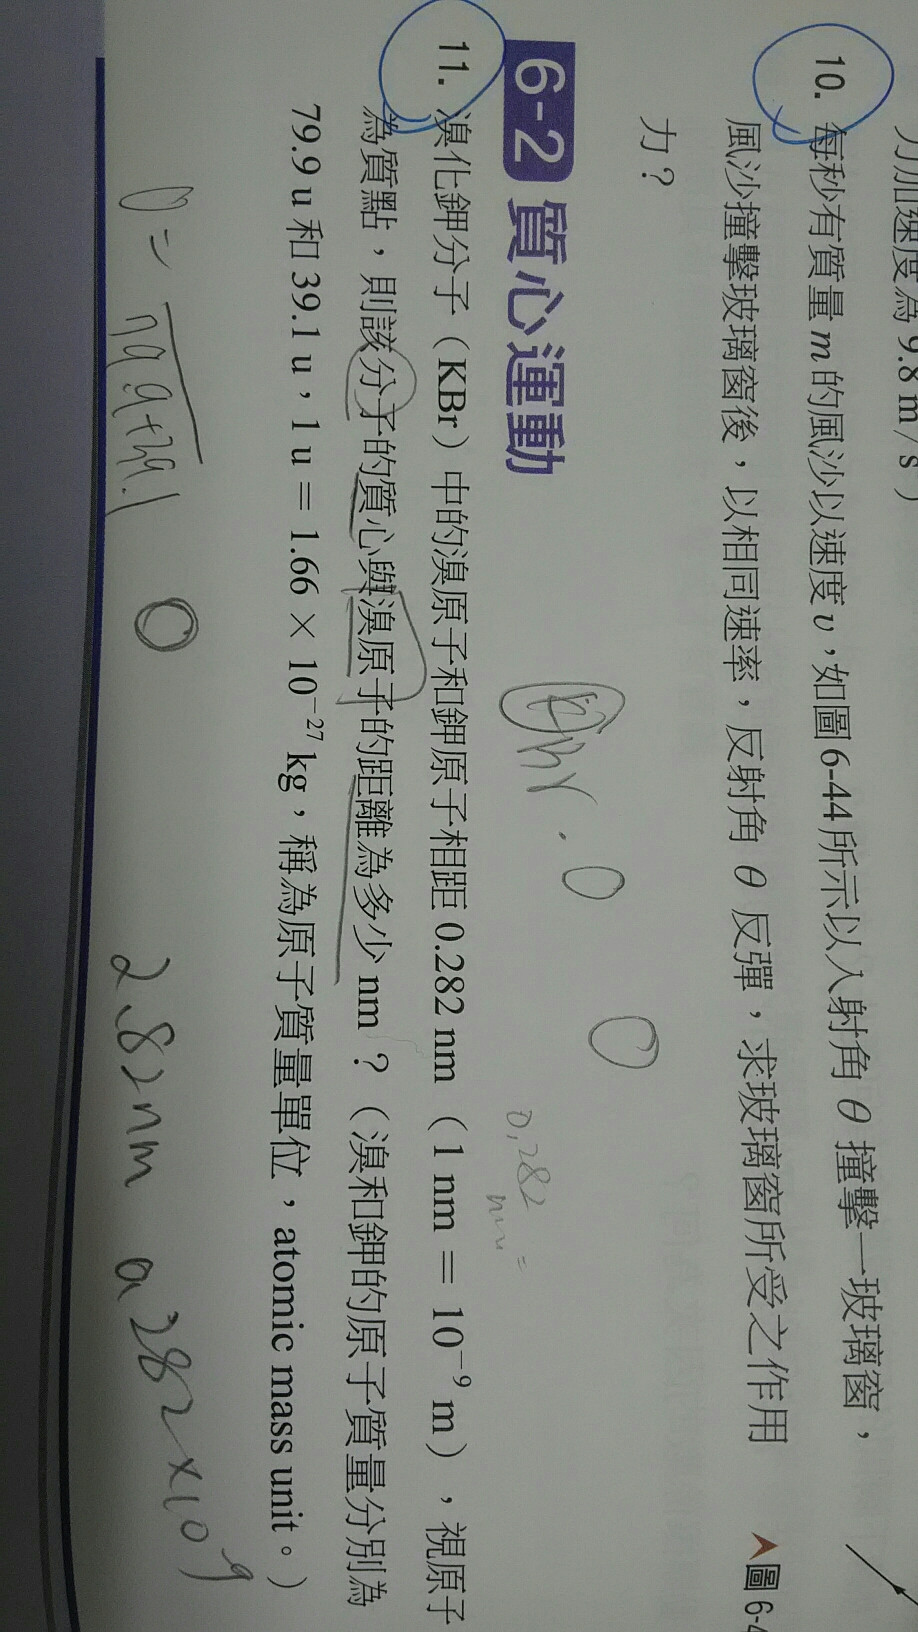 力加速度為 9.8 m / s
10. 每秒有質量 m 的風沙以速度 v，如圖6-44所示以入射角 θ 撞擊一玻璃窗，
風沙撞擊玻璃窗後，以相同速率，反射角 θ 反彈，求玻璃窗所受之作用
力？
圖 6-4
6-2 質心運動
0.282
nm =
11. 溴化鉀分子（KBr）中的溴原子和鉀原子相距 0.282 nm（1 nm = 10⁻⁹ m），視原子
為質點，則該分子的質心與溴原子的距離為多少 nm？（溴和鉀的原子質量分別為
79.9 u 和 39.1 u，1 u = 1.66 × 10⁻²⁷ kg，稱為原子質量單位，atomic mass unit。）
79.9+39.1
2.82nm